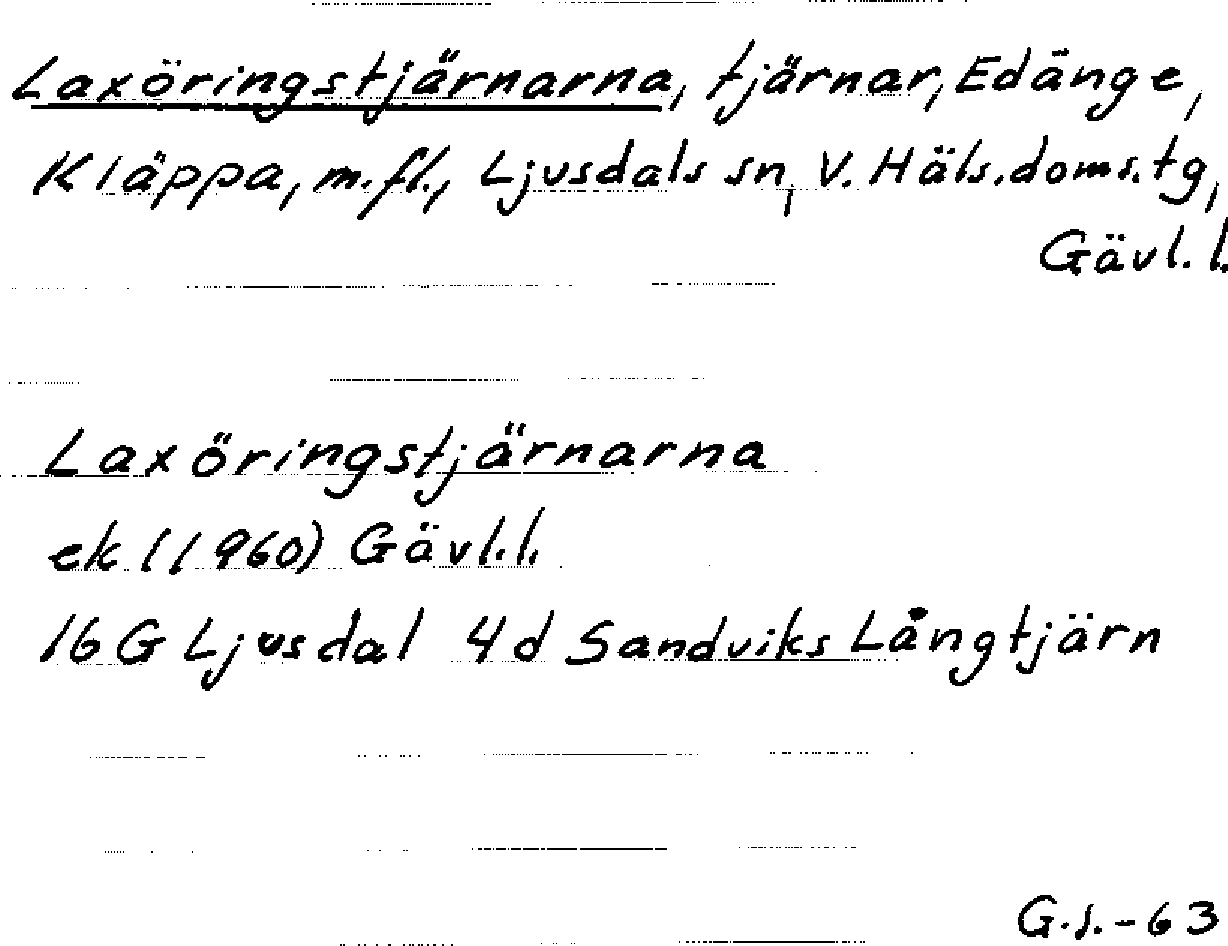 Laxöringstjärnarna, tjärnar, Edänge,
Kläppa, m.fl., Ljusdals sn, V. Häls. doms. tg,
Gävl. l.
Laxöringstjärnarna
ek (1960) Gävl. l.
16 G Ljusdal 4d Sandviks Långtjärn
G.S.-63